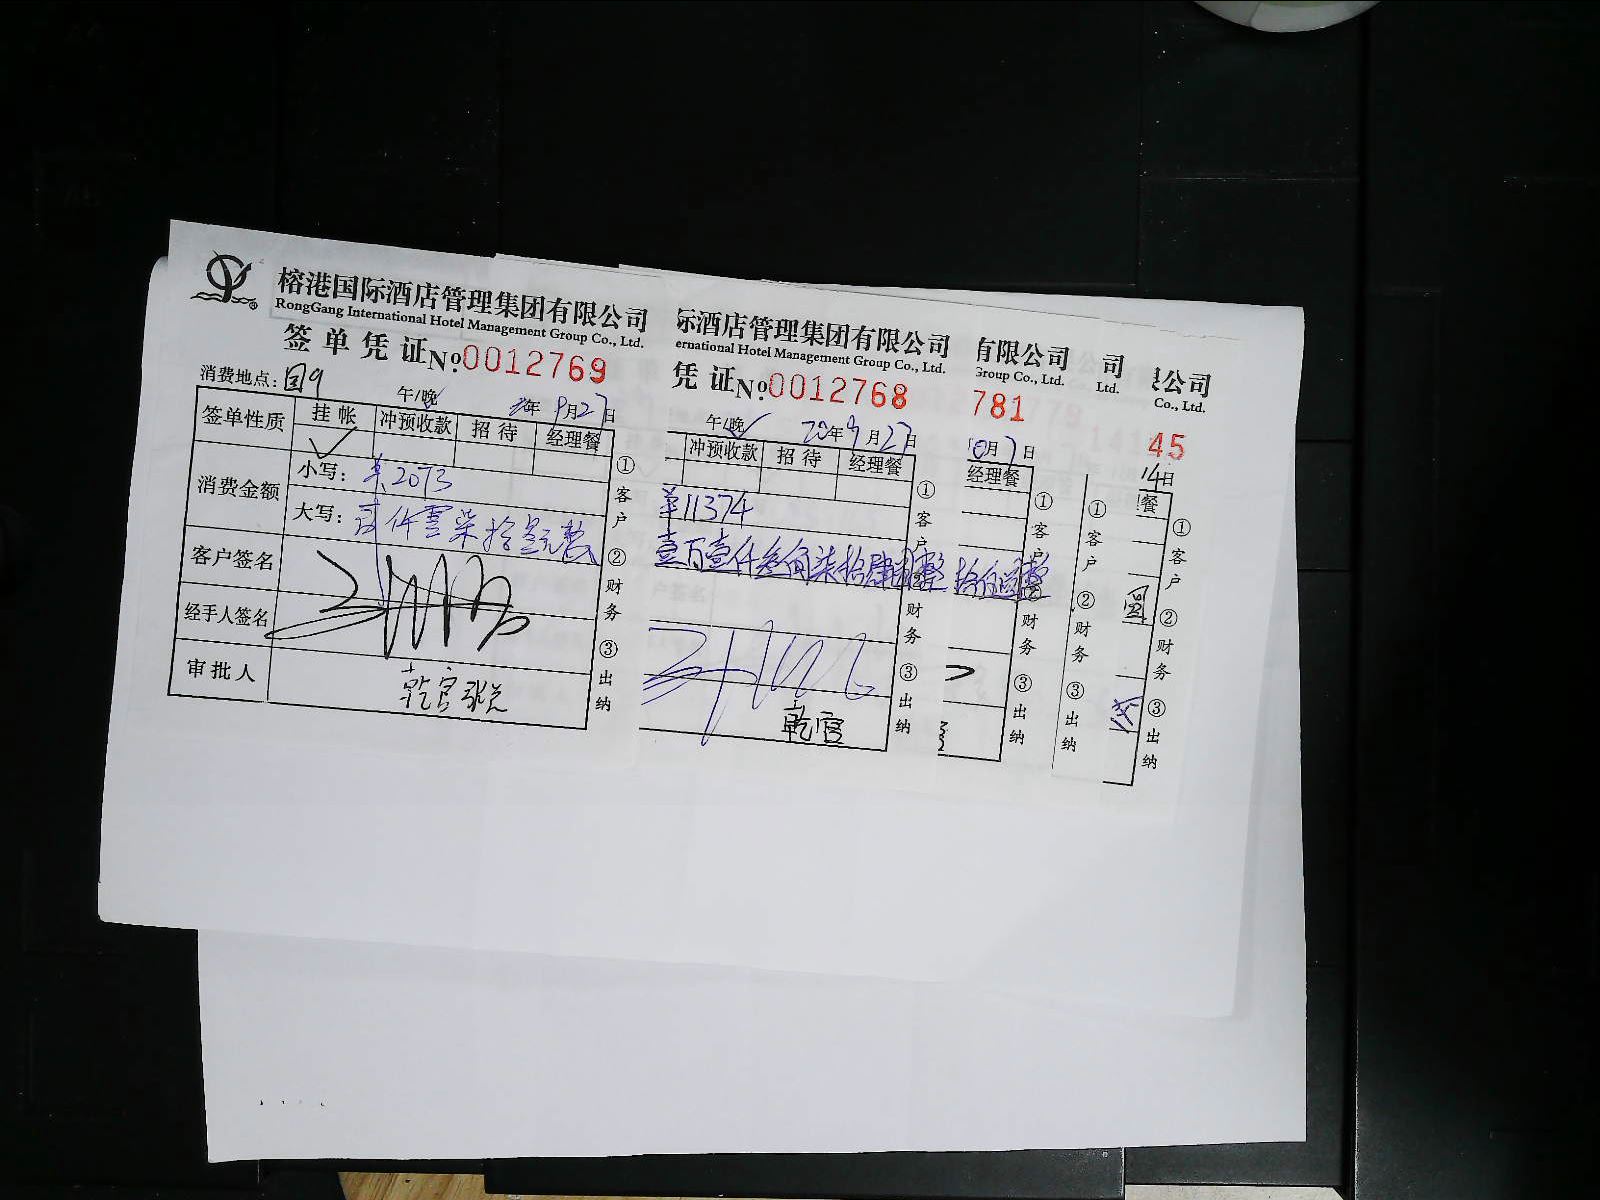 榕港国际酒店管理集团有限公司
RongGang International Hotel Management Group Co., Ltd.
签单凭证 No.0012769
消费地点：
午/晚 年9月27日
签单性质 挂帐 冲预收款 招待 经理餐
消费金额 小写：2073
大写：贰仟零柒拾叁元整
客户签名
经手人签名
审批人
①客户 ②财务 ③出纳
际酒店管理集团有限公司
ernational Hotel Management Group Co., Ltd.
凭证 No.0012768
午/晚 20年9月27日
冲预收款 招待 经理餐
¥11374
①客户 ②财务 ③出纳
有限公司
Group Co., Ltd.
781
月7日
经理餐
①客户 ②财务 ③出纳
公司
Ltd.
①客户 ②财务 ③出纳
公司
Co., Ltd.
45
14日
餐
①客户 ②财务 ③出纳